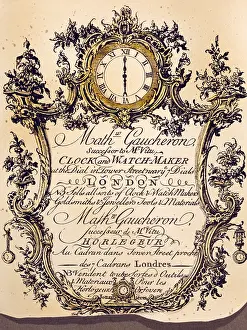 XII
Math.w Gaucheron
Successor to Mr. Vitu
CLOCK and WATCH-MAKER
at the Dial in Tower Street near 7 Dials
LONDON
NB. Sells all sorts of Clock & Watch Makers
Goldsmiths & Jewellers Tools & Materials
Math.w Gaucheron
Successeur de Mr. Vitu
HORLEGEUR
Au Cadran dans Tower Street proche
des 7 Cadrans Londres
Vendent toutes sortes d'Outils
& Materiaux Pour les
Horlogeurs